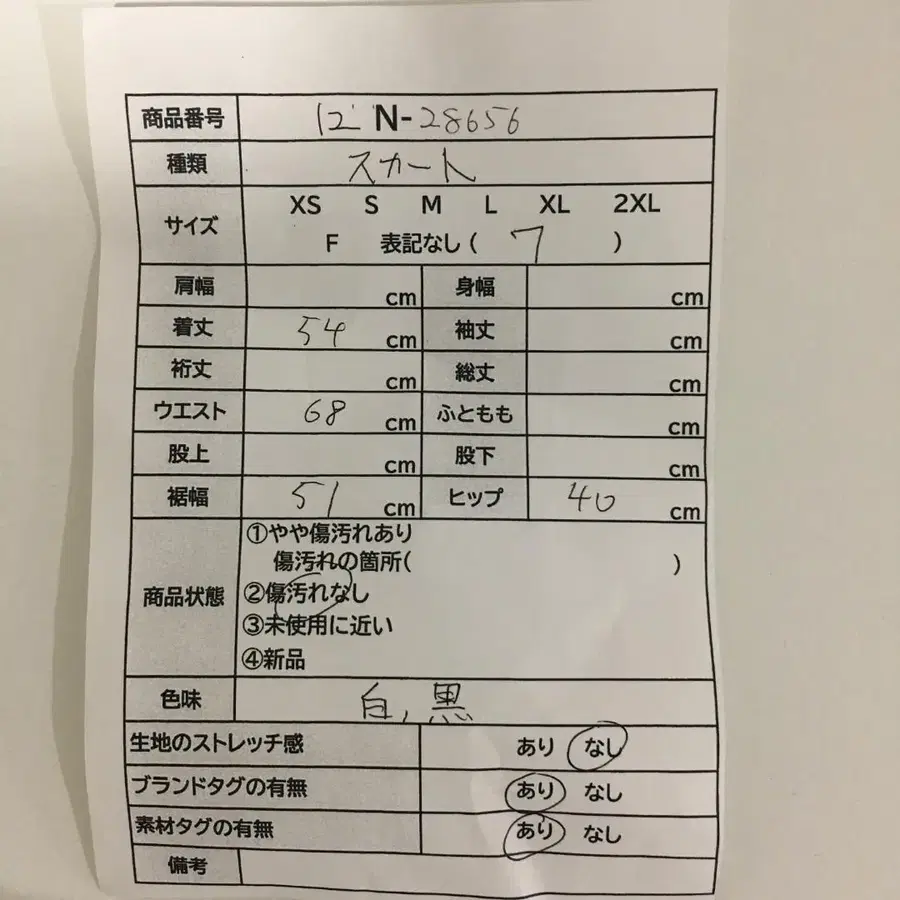 商品番号 12 N-28656
種類 スカート
サイズ XS S M L XL 2XL
F 表記なし ( 7 )
肩幅 cm 身幅 cm
着丈 54 cm 袖丈 cm
裄丈 cm 総丈 cm
ウエスト 68 cm ふともも cm
股上 cm 股下 cm
裾幅 51 cm ヒップ 40 cm
①やや傷汚れあり
傷汚れの箇所( )
商品状態 ②傷汚れなし
③未使用に近い
④新品
色味 白、黒
生地のストレッチ感 あり なし
ブランドタグの有無 あり なし
素材タグの有無 あり なし
備考